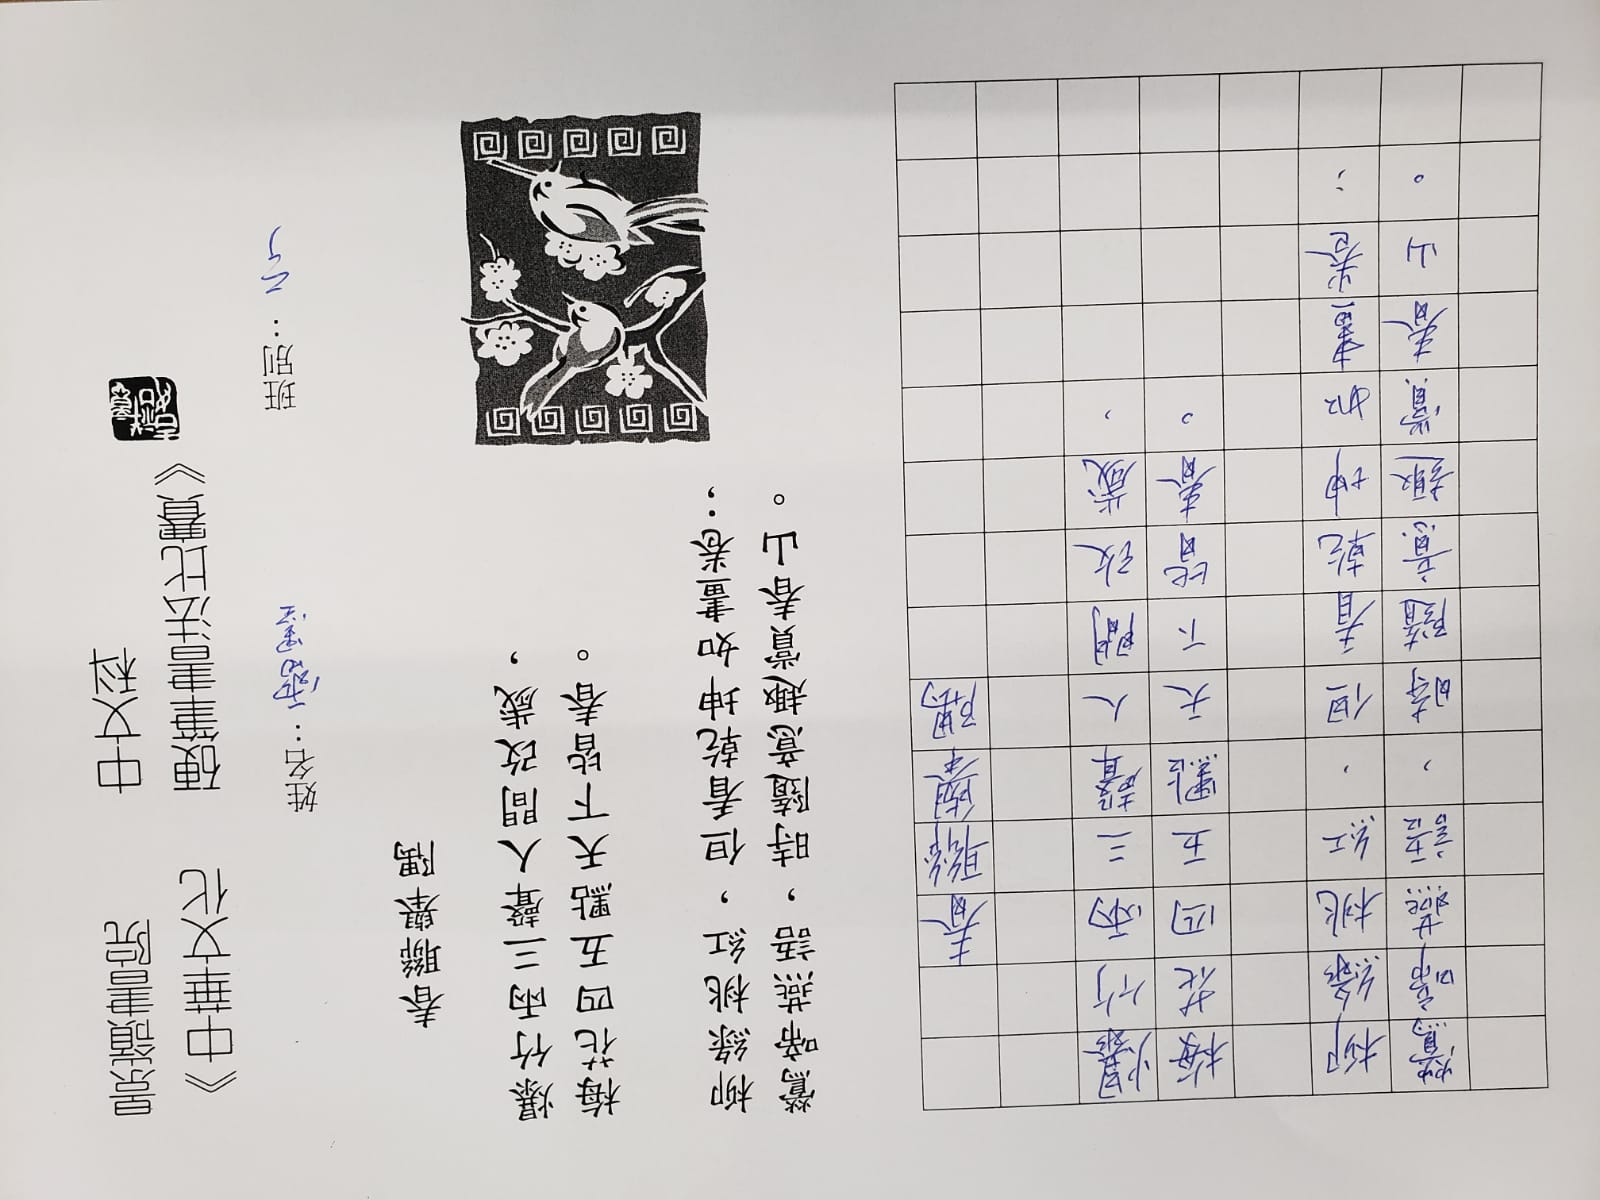 景嶺書院 中文科
《中華文化 硬筆書法比賽》
姓名：
班別：
春聯舉隅
爆竹兩三聲人間改歲，
梅花四五點天下皆春。
柳綠桃紅，但看乾坤如畫卷；
鶯啼燕語，時隨意趣賞春山。
春聯舉隅
爆竹兩三聲人間改歲，
梅花四五點天下皆春。
柳綠桃紅，但看乾坤如畫卷；
鶯啼燕語，時隨意趣賞春山。